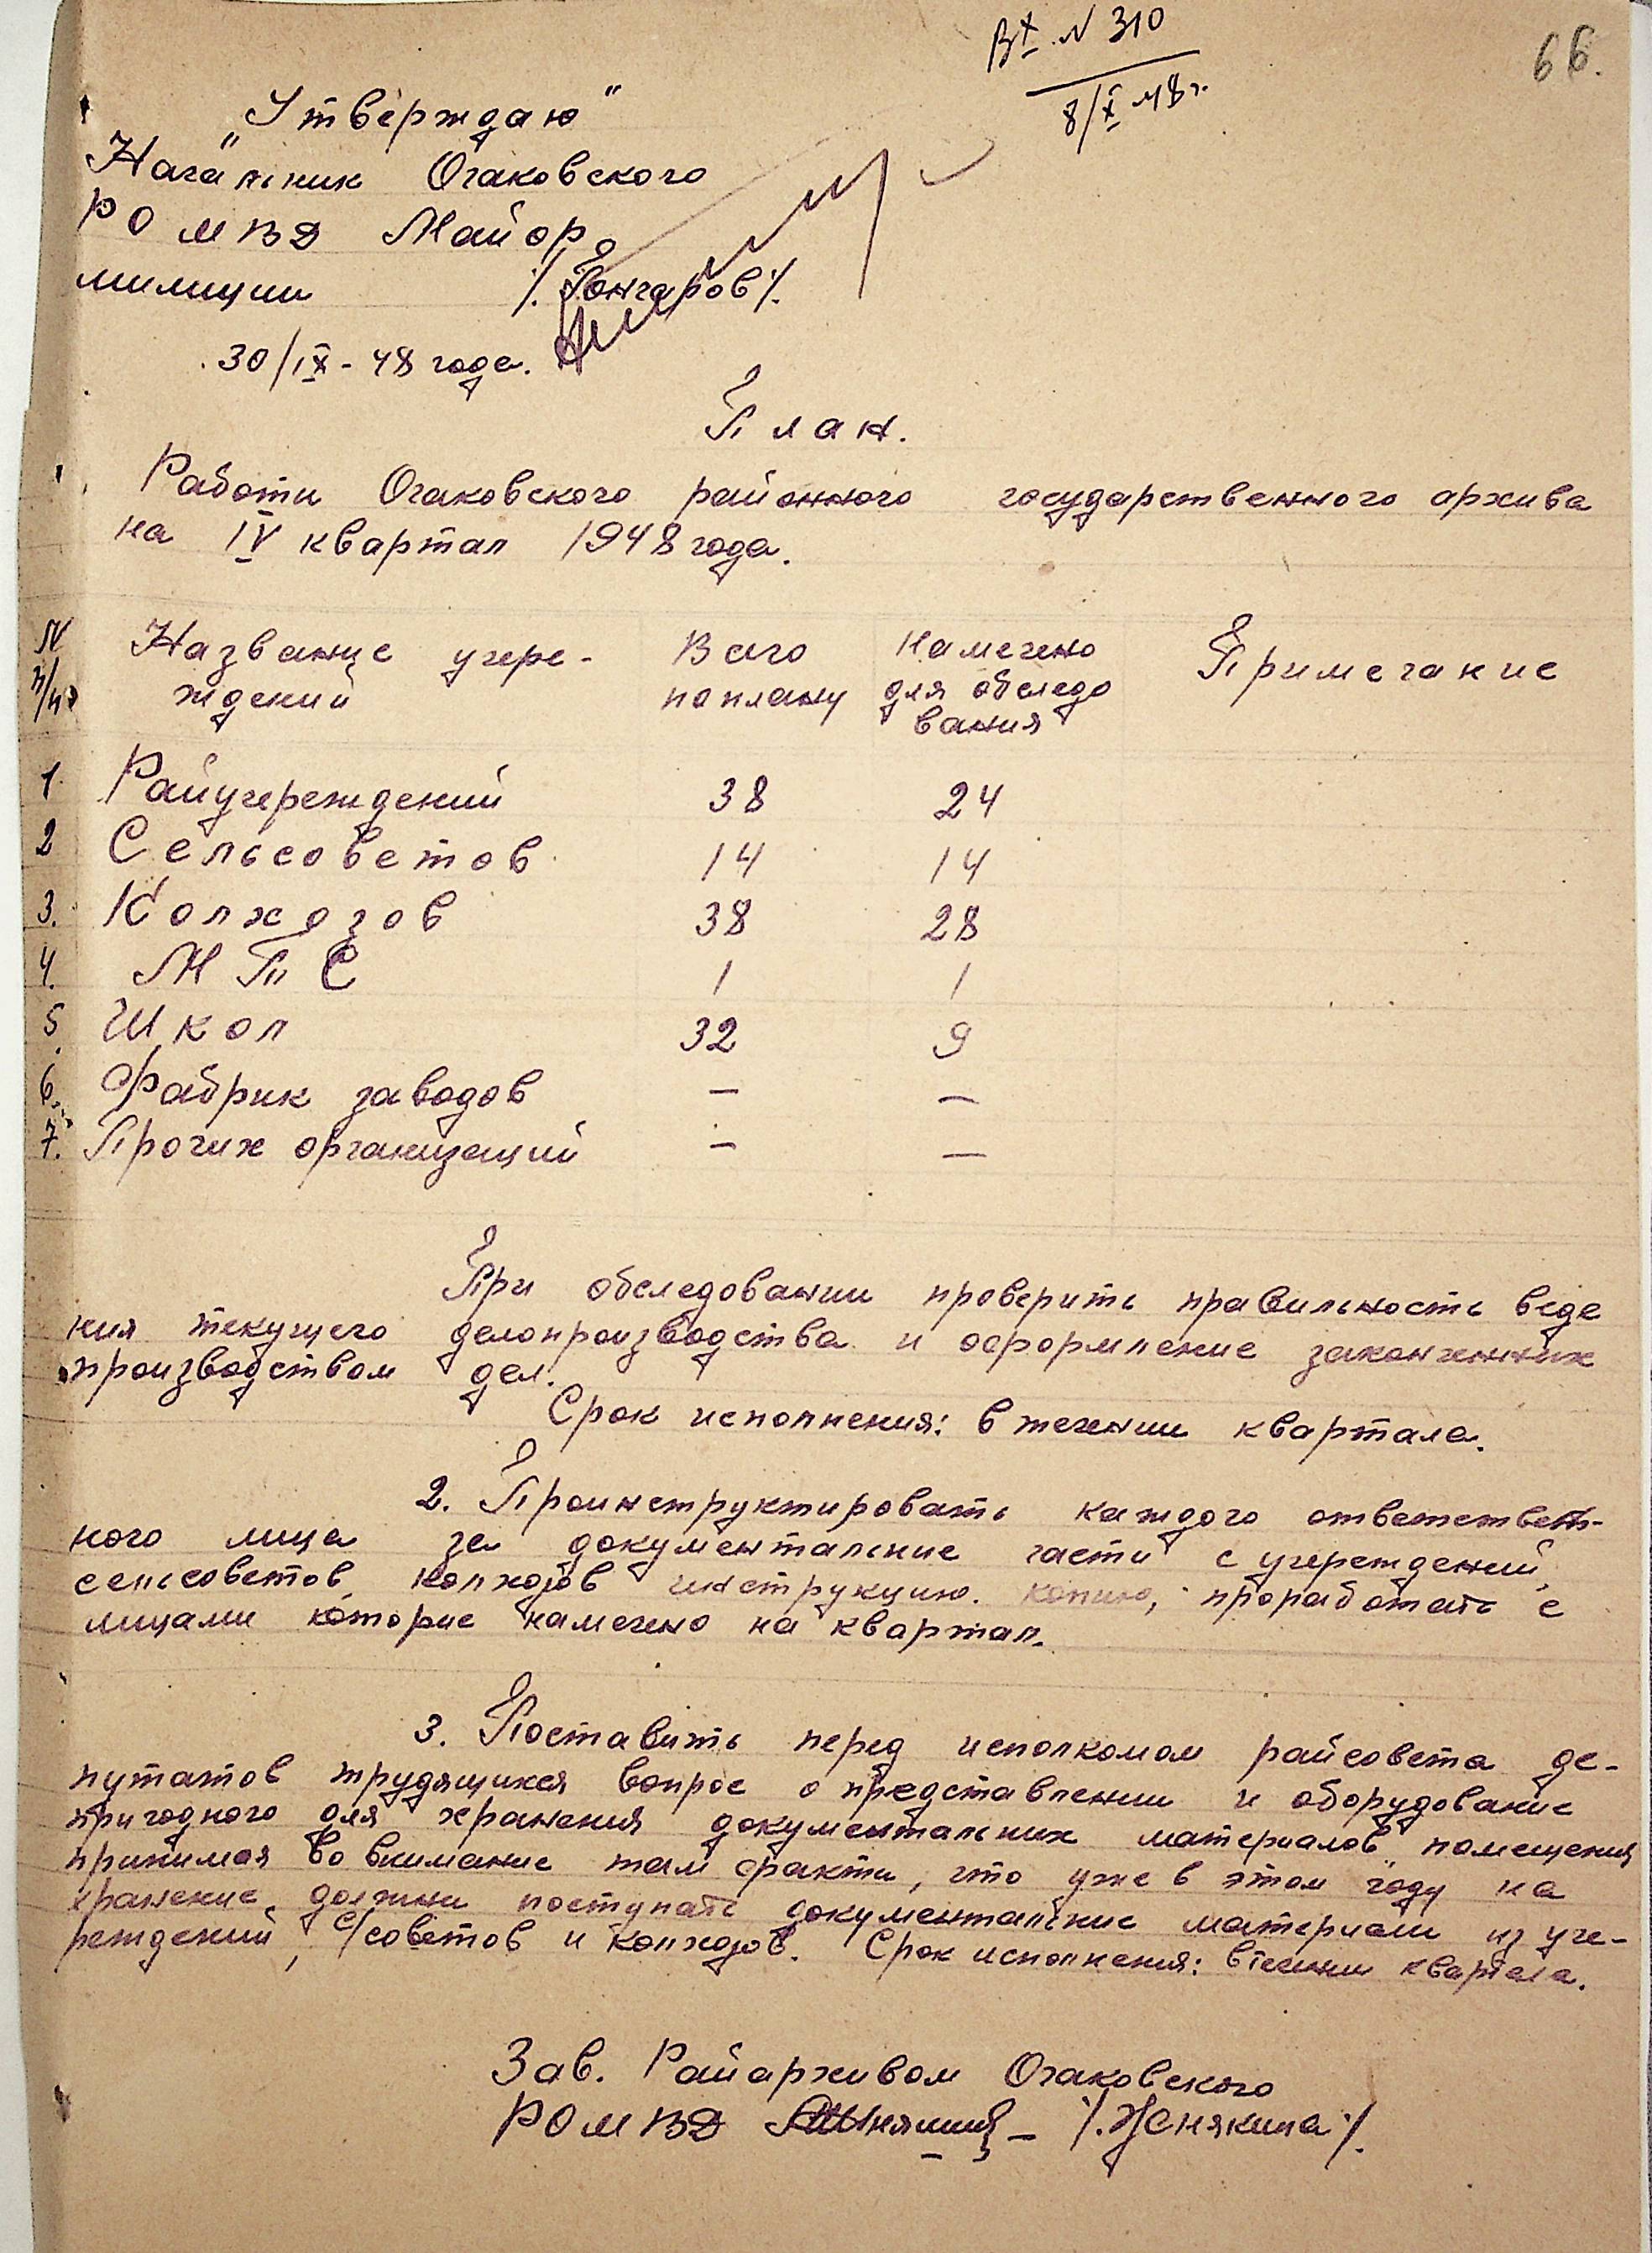 Вх. N 310
8/X 48 г.
66.
„Утверждаю"
Начальник Очаковского
РО МВД Майор
милиции /.Гончаров/.
30/IX - 48 года.
План.
Работи Очаковского районного государственного архива
на IV квартал 1948 года.
N п/п Название учере- Всего Намечено Примечание
ждений по плану для обследо
вания
1. Райучереждений 38 24
2 Сельсоветов 14 14
3. Колхозов 38 28
4. МТС 1 1
5. Школ 32 9
6. Фабрик заводов — —
7. Прочих организаций — —
При обследовании проверить правильность веде
ния текущего делопроизводства и оформление законченних
производством дел.
Срок исполнения: в течении квартала.
2. Проинструктировать каждого ответствен-
ного лица за документальние части с учереждений,
сельсоветов, колхозов инструкцию. копию, проработать с
лицами которие намечено на квартал.
3. Поставить перед исполкомом райсовета де-
путатов трудящихся вопрос о представлении и оборудование
пригодного для хранения документальних материалов помещения
принимая во внимание там факти, что уже в этом году на
хранение должни поступать документальние материали из уче-
реждений, с/советов и колхозов. Срок исполнения: в течении квартала.
Зав. Райархивом Очаковского
РО МВД /.Женякина/.